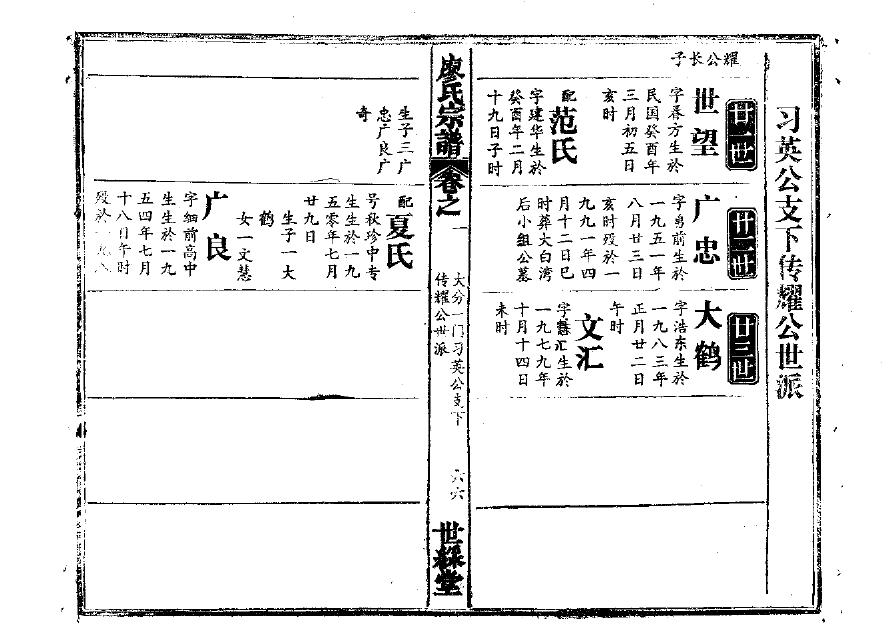 习英公支下传耀公世派
廿一世
耀公长子
世望
字春方生於
民国癸酉年
三月初五日
亥时
配范氏
字建华生於
癸酉年二月
十九日子时
廿二世
广忠
字勇前生於
一九五一年
八月廿三日
亥时殁於一
九九一年四
月十二日巳
时葬大白湾
后小组公墓
廿三世
大鹤
字浩东生於
一九八三年
正月廿二日
午时
文汇
字慧汇生於
一九七九年
十月十四日
未时
廖氏宗譜
卷之一
大分一门习英公支下
传耀公世派
六六
世綵堂
生子三广
忠广良广
奇
配夏氏
号秋珍中专
生生於一九
五零年七月
廿九日
生子一大
鹤
女一文慧
广良
字细前高中
生生於一九
五四年七月
十八日午时
殁於一九八